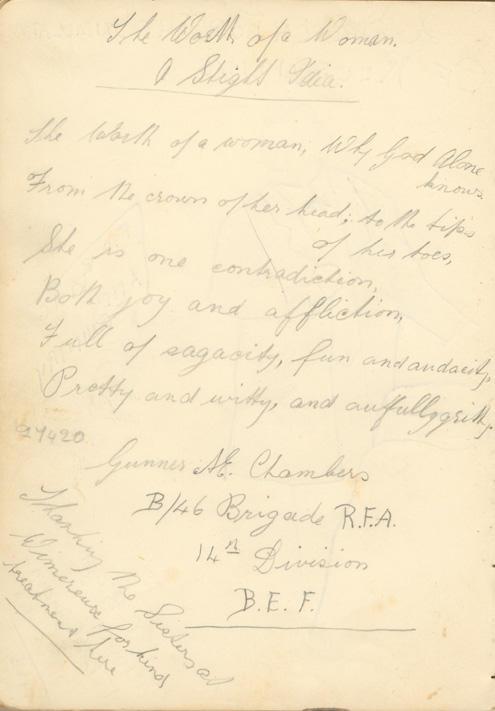 The Worth of a Woman.
A Slight Idia.
The Worth of a woman, Why God Alone
knows
From the crown of her head; to the tips
of her toes,
She is one contradiction,
Both joy and affliction,
Full of sagacity, fun and audacity,
Pretty and witty, and aufully gritty.
27420
Gunner A.E. Chambers
B/46 Brigade R.F.A.
14th Division
B.E.F.
Thanking the Sisters at
Wimereux for kind
treatment here